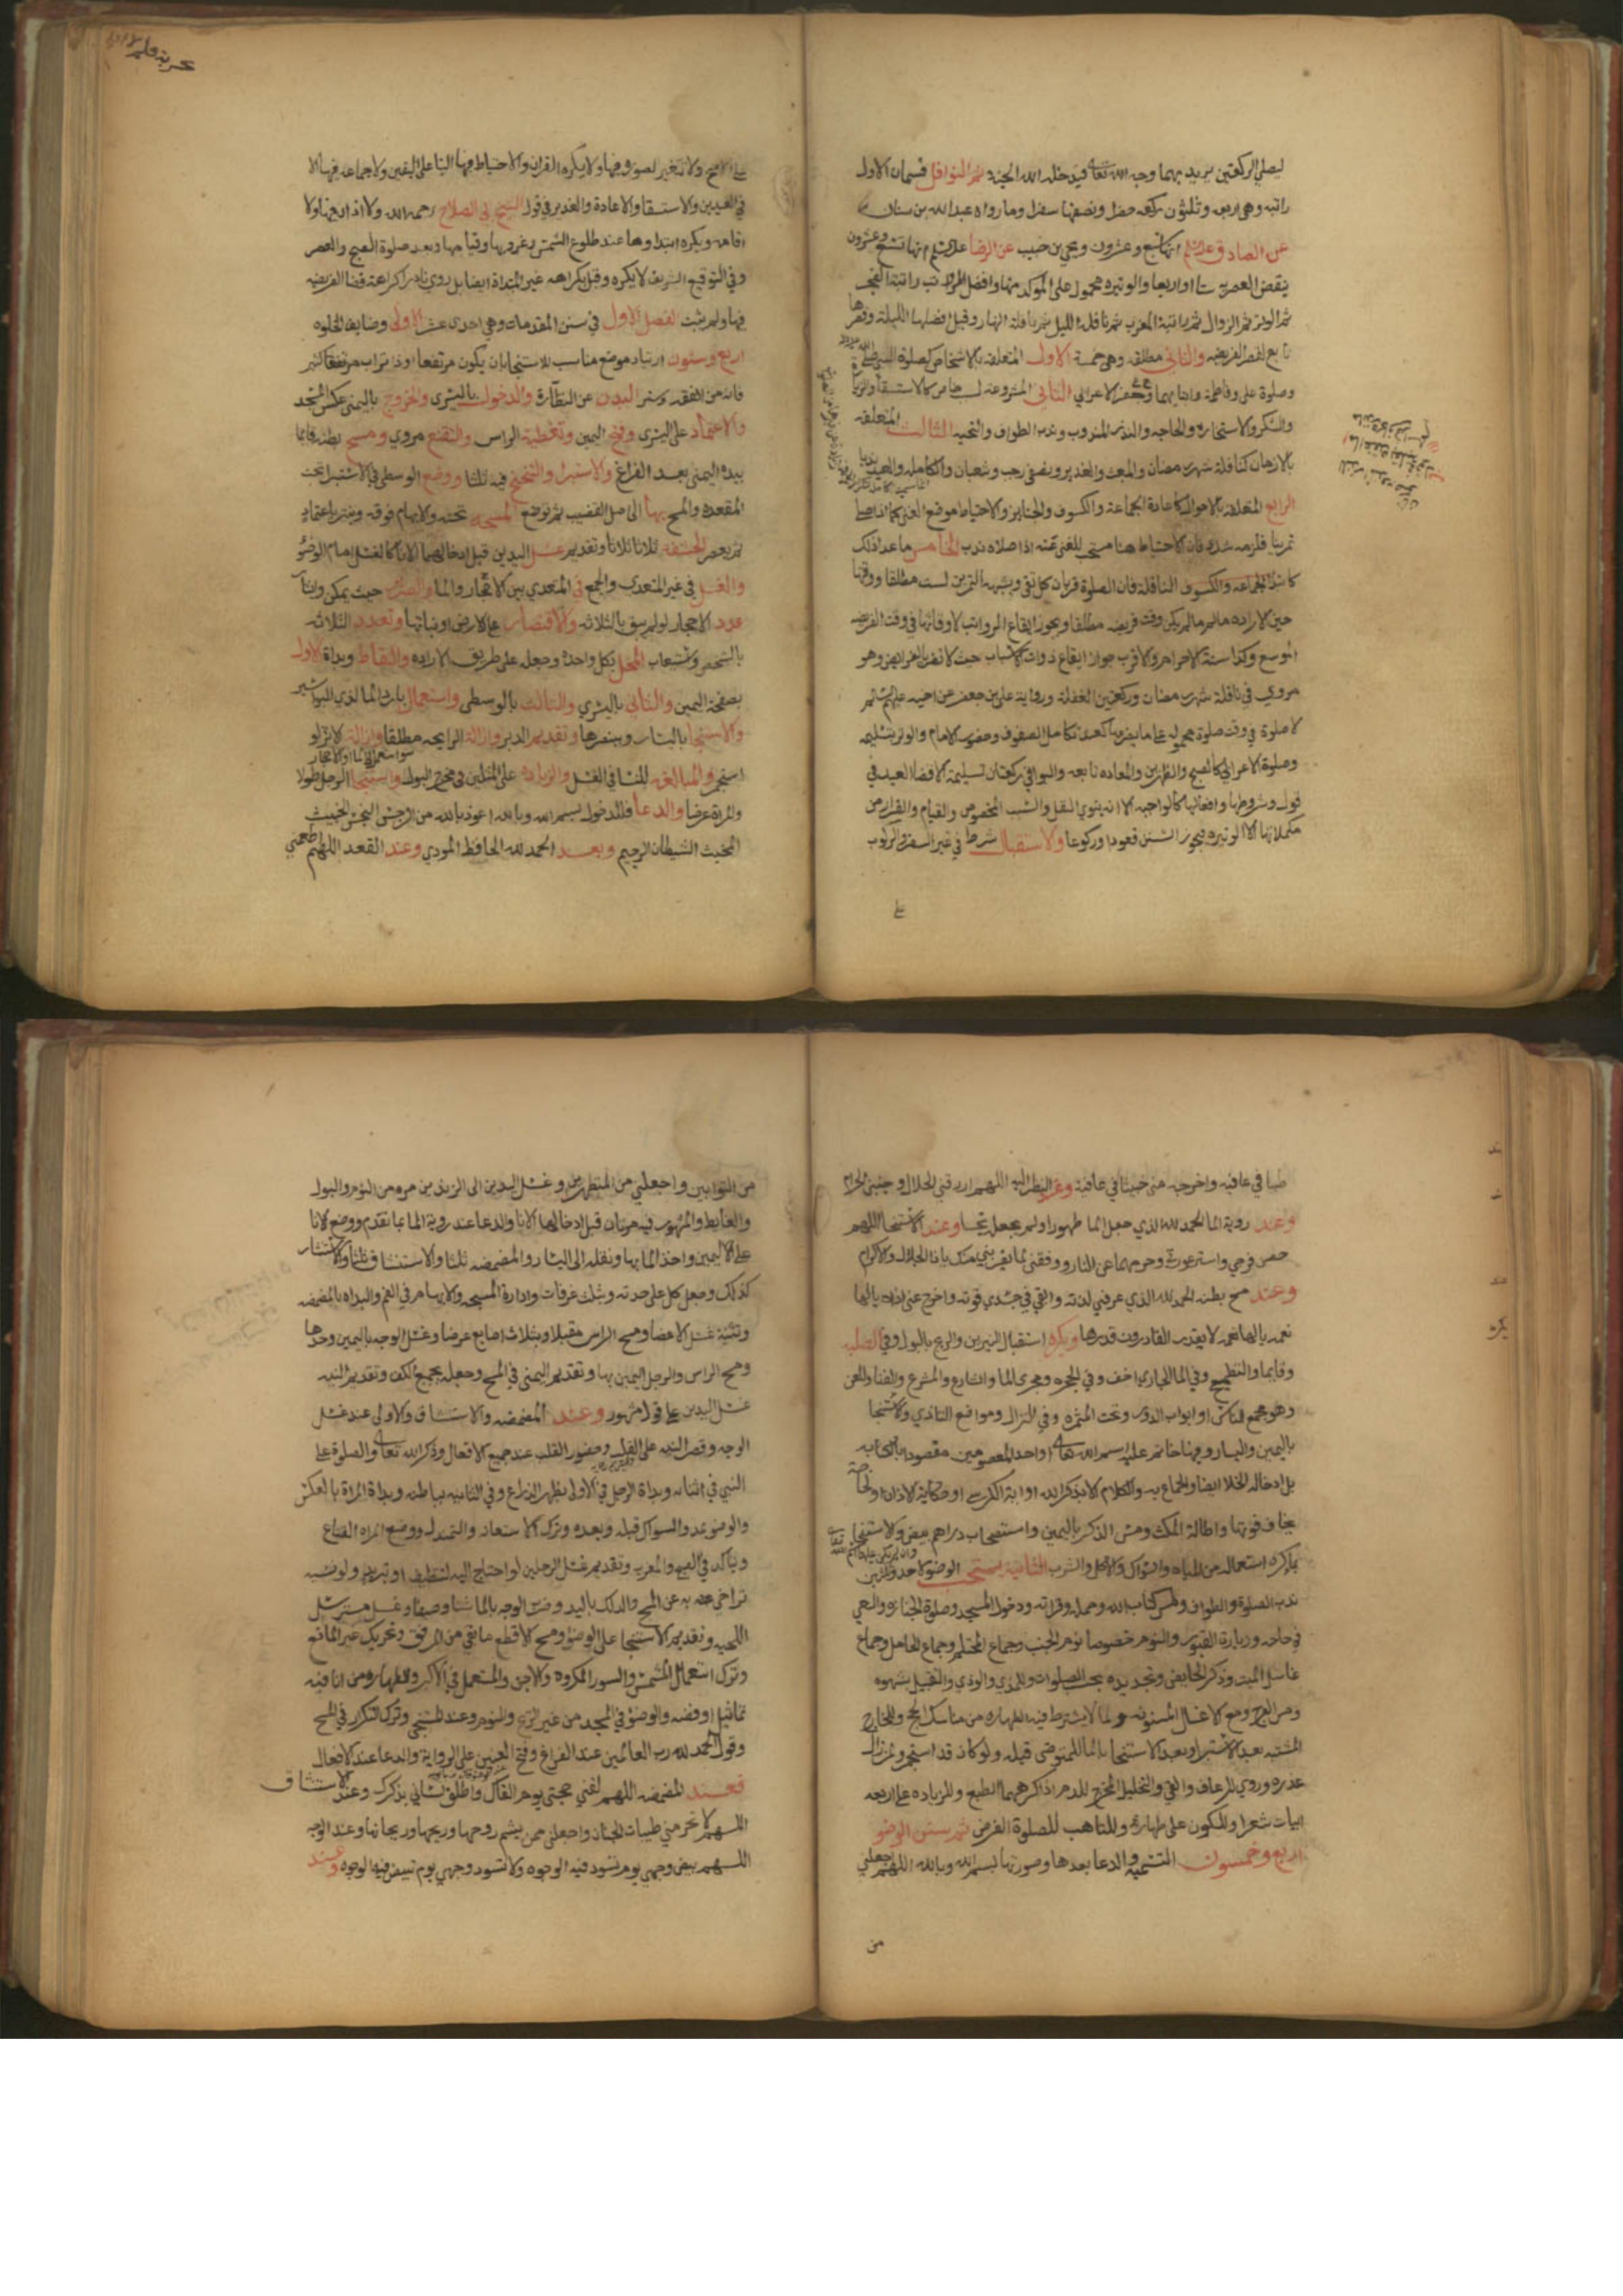 ليصلي الركعتين يريد بهما وجه الله تعالى فيدخله الله الجنة ثم النوافل قسمان الاول
راتبه وهي اربع وثلثون ركعه حضرا ونصفها سفرا وما رواه عبد الله بن سنان
عن الصادق عليه السلم انها سبع وعشرون ويحيى بن حبيب عن الرضا عليه السلم انها تسع وعشرون
ينقص العصريه ستا او اربعا والوتيره محمول على المؤكد منها وافضل الرواتب راتبة الفجر
ثم الوتر ثم الزوال ثم راتبة المغرب ثم نافلة الليل ثم نافلة النهار وقيل افضلها الليلة وقصرها
تابع لقصر الفريضه والثاني مطلقه وهي خمسة الاول المتعلقه بالاشخاص كصلوة النبي صلى الله عليه
وصلوة علي وفاطمة وابنايهما وجعفر والاعرابي الثاني المشروعة لسبب خاص كالاستسقا والزيارة
والشكر والاستخاره والحاجه والنذر المندوب وندب الطواف والتحيه الثالث المتعلقه
بالازمان كنافلة شهر رمضان والمبعث والغدير ونصفي رجب وشعبان والكاملة والعيد ندبا
الرابع المتعلقة بالاحوال كاعادة الجماعة والكسوف والجنايز والاحتياط موضع الغنى كما اذا صلي
تمرينا فلزمه شك فان الاحتياط هنا مستحب للغنى عنه اذا صلاه ندب الخامس ما عدا ذلك
كابتدا الجماعه والكسوف النافلة فان الصلوة قربان كل تقي وشبهه التمرين ليست مطلقا ووقتها
حين الاراده ما لم يكن وقت فريضه مطلقا ويجوز ايقاع الرواتب لاوقاتها في وقت الفريضه
الموسع وكذا سنة الاحرام والاقرب جواز ايقاع ذوات الاسباب حيث لا تضر بالفرايض وهو
مروي في نافلة شهر رمضان وركعتين الغفلة ورواية علي بن جعفر عن اخيه عليهم السلم
لا صلوة في وقت صلوة محموله على ما يضر بها كعند تكامل الصفوف وحضور الامام والوتر بتسليمه
وصلوة الاعرابي كالصبح والظهرين والمعاده تابعه والبواقي ركعتان تسليمة الا قضا العيد في
قول وشروطها وافعالها كالواجبه الا انه ينوي النفل والسبب المخصوص والقيام والقرار من
مكملاتها الا الوتيره فيجوز السنن قعودا وركوعا والاستقبال شرط في غير السفر والركوب
على
على الاصح ولا تتغير لصوم وفيها ولا يكره القران والاحتياط فيها البنا على اليقين ولا جماعه فيها الا
في العيدين والاستسقا والاعادة والغدير في قول الشيخ ابي الصلاح رحمه الله ولا اذان فيها ولا
اقامه ويكره ابتداوها عند طلوع الشمس وغروبها وقيامها وبعد صلوة الصبح والعصر
وفي التوقيع الشريف لا يكره وقيل بكراهه غير المبتداة ايضا بل روي نادرا كراهة قضا الفريضه
فيها ولم يثبت الفصل الاول في سنن المقدمات وهي احدى عشر الاولى وضايف الخلوه
اربع وستون ارتياد موضع مناسب للاستنجا بان يكون مرتفعا او ذا تراب مرتفعا كثير
فانه من الفقه وستر البدن عن النظارة والدخول باليسرى والخروج باليمنى عكس المسجد
والاعتماد على اليسرى وفتح اليمين وتغطية الراس والتقنع مروي ومسح بطنه قايما
بيده اليمنى بعد الفراغ والاستبرا والتنحنح فيه ثلثا ووضع الوسطى في الاستبرا تحت
المقعده والمسح بها الى اصل القضيب ثم توضع المسبحه تحته والابهام فوقه وينتر باعتماد
ثم يعصر الحشفة ثلاثا ثلاثا وتقديم غسل اليدين قبل ادخالهما الانا كالغسل امام الوضوء
والغسل في غير المتعدي والجمع في المتعدي بين الاحجار والما والصرير حيث يمكن وايتار
عود الاحجار لو لم يبق بالثلاثه والاقتصار على الارض او نباتها وتعدد الثلاثه
بالشخص وتستعاب المحل بكل واحدة وجعله على طريق الاراده والتقاط وبداة الاول
بصفحة اليمين والثاني باليسرى والثالث بالوسطى واستعمال بارد الما لذي البواسير
والاستنجا باليسار وببنصرها وتقديم الدبر وازالة الرايحه مطلقا
استجمر والمبالغه للنسا في الغسل والزياده على المثلين في مخرج البول واستنجا الرجل طولا
والمراة عرضا والدعا فللدخول بسم الله وبالله اعوذ بالله من الرجس النجس الخبيث
المخبث الشيطان الرجيم وبعد الحمد لله الحافظ المودي وعند القعد اللهم اطعمني
طيبا في عافيه واخرجه مني خبيثا في عافية وعند النظر اليه اللهم ارزقني الحلال وجنبني الحرام
وعند روية الما الحمد لله الذي جعل الما طهورا ولم يجعله نجسا وعند الاستنجا اللهم
حصن فرجي واستر عورتي وحرمهما على النار ووفقني لما يقربني منك ياذا الجلال والاكرام
وعند مسح بطنه الحمد لله الذي عرفني لذته وابقى في جسدي قوته واخرج عني اذاه يا لها
نعمه يا لها نعمه لا يقدر القادرون قدرها ويكره استقبال النيرين والريح بالبول وفي الصلبه
وقايما والتطميح وفي الما الجاري اخف وفي الجحره ومجرى الما والشارع والمشرع والفنا والملعن
وهو مجمع الناس او ابواب الدور وتحت المثمره وفي النزال ومواضع التاذي والاستنجا
باليمين واليسار وفيها خاتم عليه اسم الله تعالى او احد المعصومين مقصودا بالكتابه
بل ادخاله الخلا ايضا والجماع به والكلام الا بذكر الله او اية الكرسي او حكاية الاذان او لحاجة
يخاف فوتها واطالة المكث ومس الذكر باليمين واستصحاب دراهم بيض والاستنجا
بما يكره استعماله من المياه والسواك والاكل والشرب الثانية يستحب الوضوء لاحد وثلثين
ندب الصلوة والطواف ولمس كتاب الله وحمله وقراته ودخول المسجد وصلوة الجنازه والسعي
في حاجه وزيارة القبور والنوم خصوصا نوم الجنب وجماع المحتلم وجماع الحامل وجماع
غاسل الميت وذكر الحايض وتجديده بحسب الصلوات وللمذي والوذي والتقبيل بشهوه
ومس الفرج ومع الاغسال المسنونه ولما لا يشترط فيه الطهاره من مناسك الحج وللخارج
المشتبه بعد الاستبرا وبعد الاستنجا بالما للمتوضي قبله ولو كان قد استجمر ولمن زال
عذره وروي للرعاف والقي والتخليل المخرج للدم اذا كرههما الطبع وللزياده على اربعه
ابيات شعرا وللكون على طهارة وللتاهب للصلوة الفرض ثم سنن الوضو
اربع وخمسون التسميه والدعا بعدها وصورتها بسم الله وبالله اللهم اجعلني
من
من التوابين واجعلني من المتطهرين وغسل اليدين الى الزندين مره من النوم والبول
والغايط والمشهور فيه مرتان قبل ادخالهما الانا والدعا عند روية الما بما تقدم ووضع الانا
على اليمين واخذ الما بها ونقله الى اليسار والمضمضه ثلثا والاستنشاق ثلثا والاستنثار
كذلك وجعل كل على حدته وبثلث غرفات وادارة المسبحه والابهام في الفم والبداه بالمضمضه
وتثنية غسل الاعضا ومسح الراس مقبلا وبثلاث اصابع عرضا وغسل الوجه باليمين وحدها
ومسح الراس والرجل اليمين بها وتقديم اليمنى في المسح وجعله بجميع الكف وتقديم النيه
غسل اليدين على قول مشهور وعند المضمضه والاستنشاق والاولى عند غسل
الوجه وقصر النيه على القلب وحضور القلب عند جميع الافعال وذكر الله تعالى والصلوة على
النبي في اثنائه وبداة الرجل في الاولى بظهر الذراع وفي الثانيه بباطنه وبداة المراة بالعكس
والوضو بمد والسواك قبله وبعده وترك الاستعانة والتمندل ووضع المراه القناع
ويتاكد في الصبح والمغرب وتقديم غسل الرجلين لو احتاج اليه لتنظيف او تبريد ولو نسيه
تراخى به عن المسح والدلك باليد وضرب الوجه بالما شتا وصيفا وغسل مسترسل
اللحيه وتقديم الاستنجا على الوضوء ومسح الاقطع ما بقي من المرفق وتحريك غير المانع
وترك استعمال المشمس والسور المكروه والاجن والمستعمل في الاكبر والطهاره من انا فيه
تماثيل او فضه والوضوء في المسجد من غير الريح والنوم وعند المستنجى وترك التكرار في المسح
وقول الحمد لله رب العالمين عند الفراغ وفتح العينين على الرواية والدعا عند الافعال
فعند المضمضه اللهم لقني حجتي يوم القاك واطلق لساني بذكرك وعند الاستنشاق
اللهم لا تحرمني طيبات الجنان واجعلني ممن يشم روحها وريحها وريحانها وعند الوجه
اللهم بيض وجهي يوم تسود فيه الوجوه ولا تسود وجهي يوم تبيض فيه الوجوه وعند